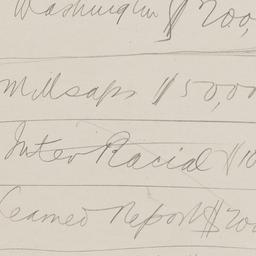 Washington $ 200,
Millsaps $ 50,00
Inter Racial $ 10
Learned Report $ 200